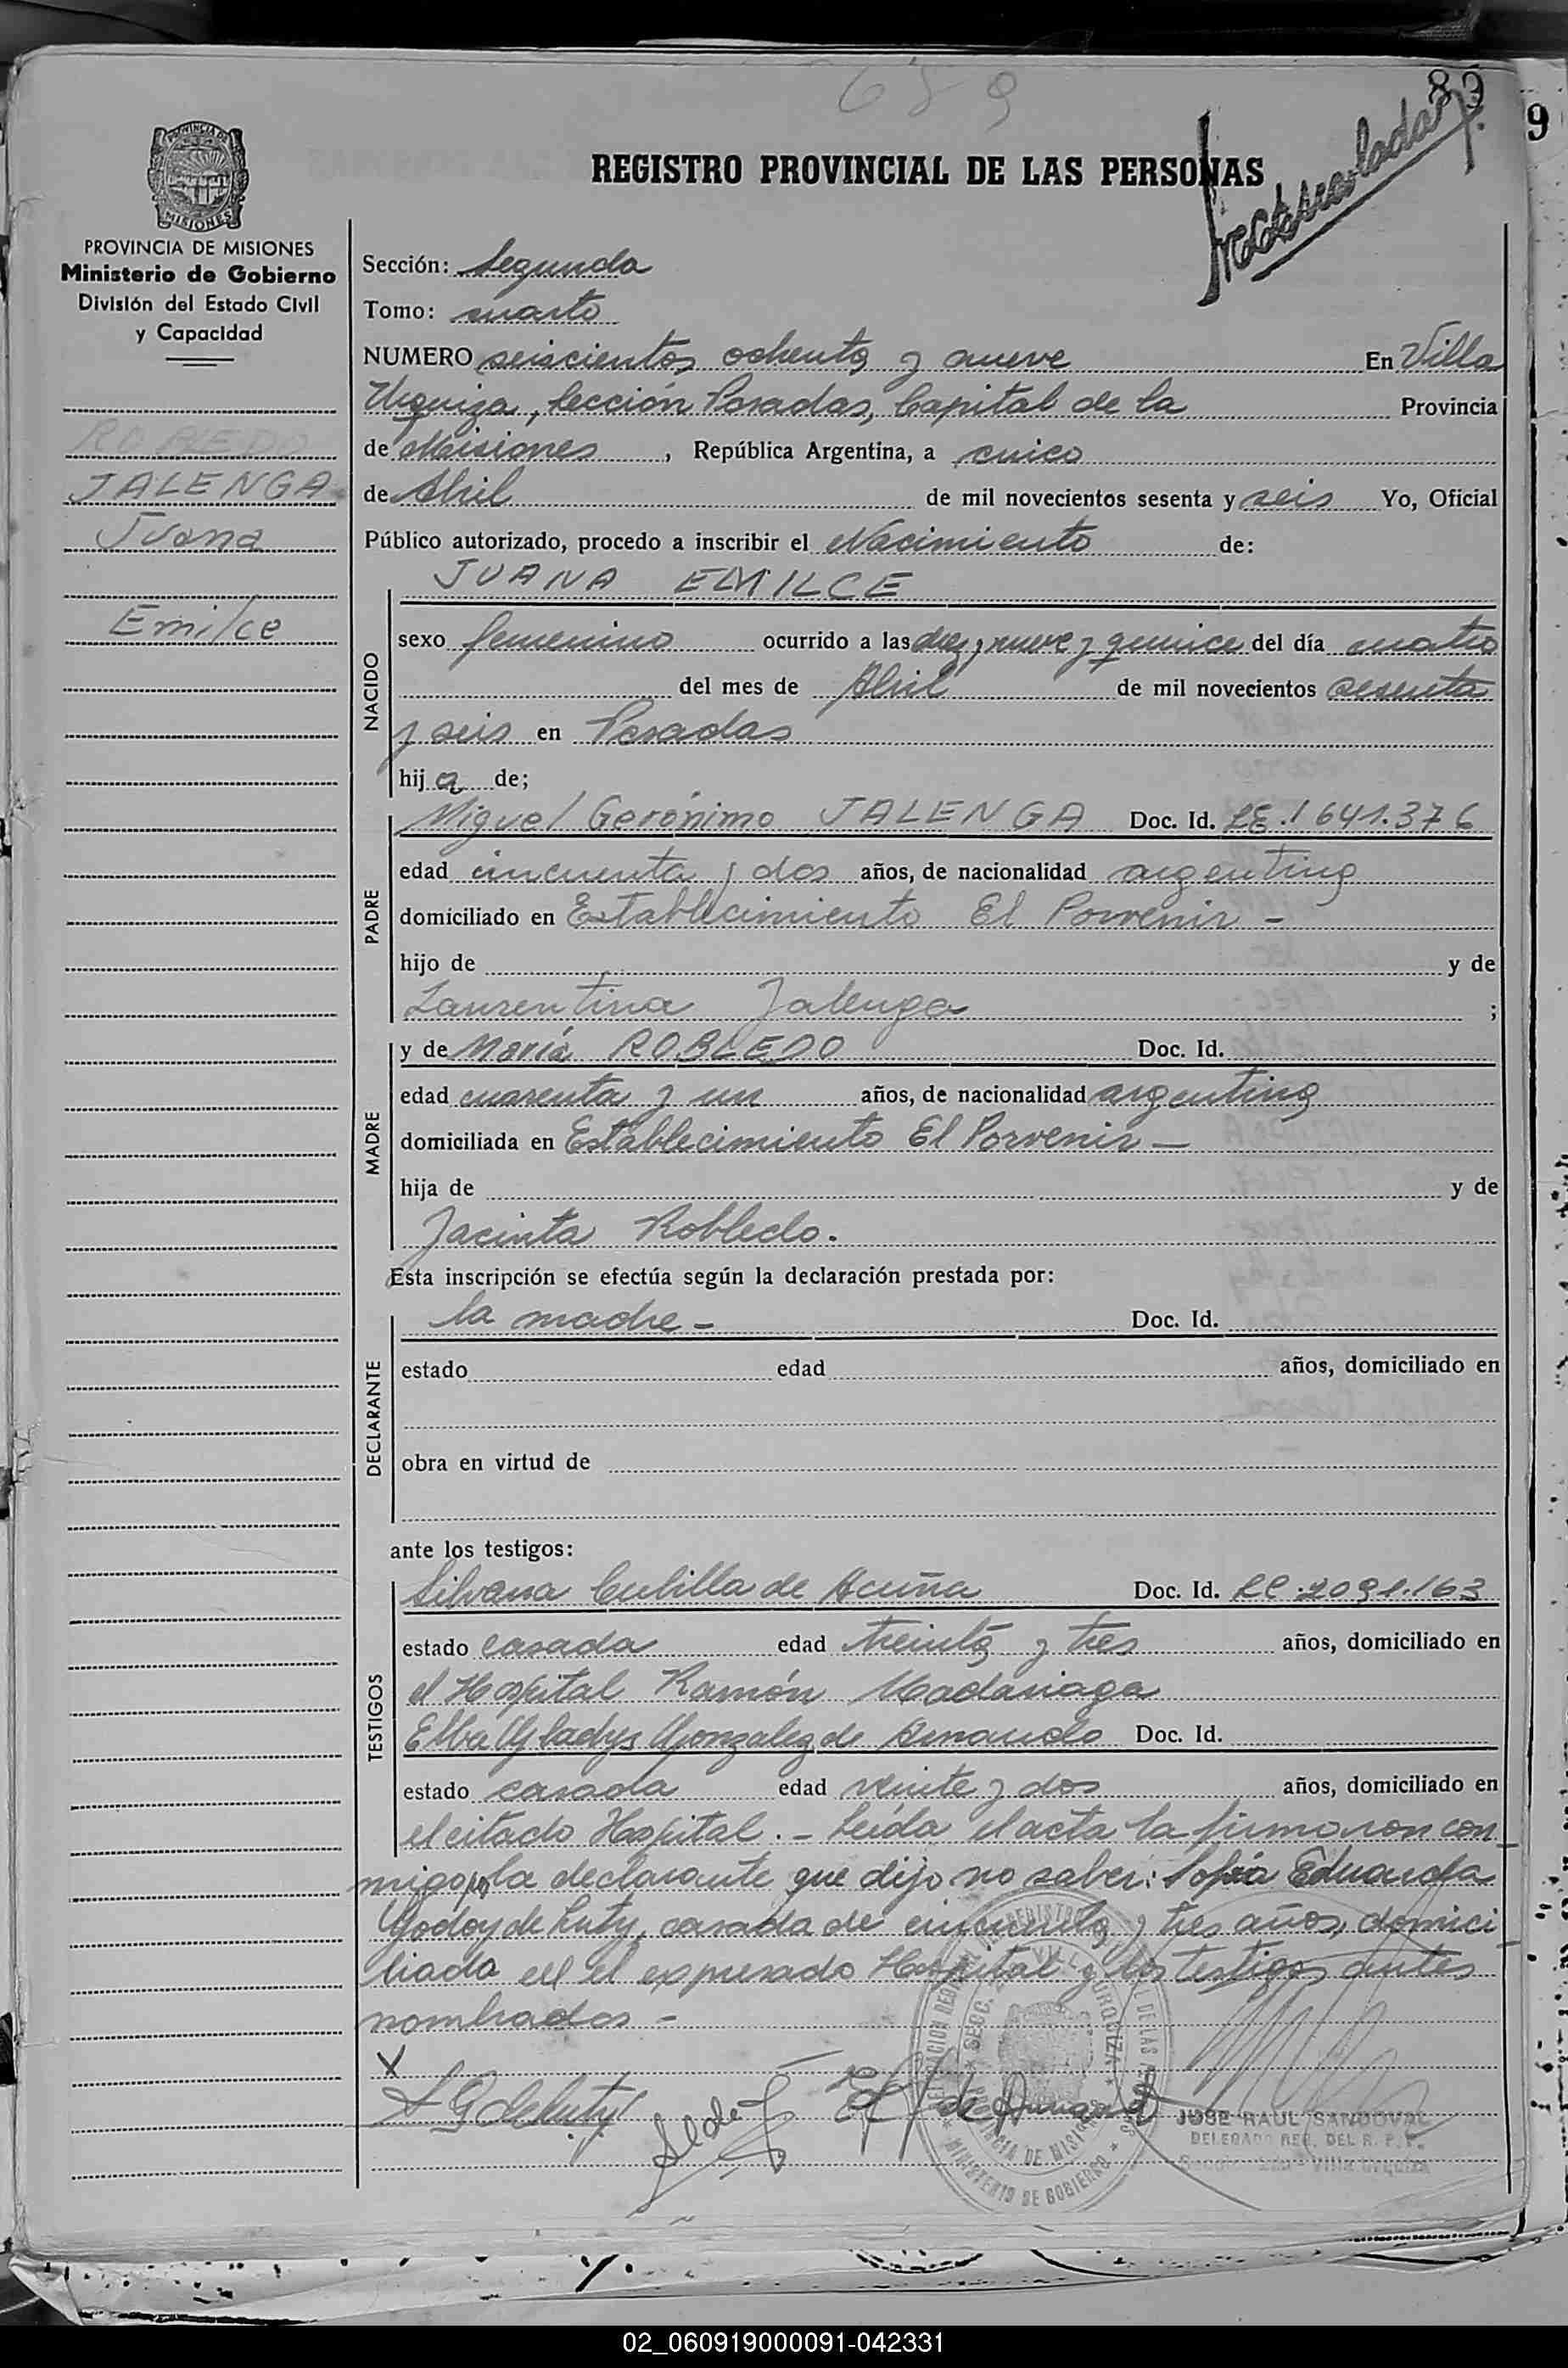 689
89
9
Matriculada
REGISTRO PROVINCIAL DE LAS PERSONAS
PROVINCIA DE MISIONES
Ministerio de Gobierno
División del Estado Civil
y Capacidad
ROBLEDO
JALENGA
Juana
Emilce
Sección: Segunda
Tomo: cuarto
NUMERO seiscientos ochenta y nueve En Villa
Urquiza, Sección Posadas, Capital de la Provincia
de Misiones, República Argentina, a cinco
de Abril de mil novecientos sesenta y seis Yo, Oficial
Público autorizado, procedo a inscribir el Nacimiento de:
JUANA EMILCE
NACIDO
sexo femenino ocurrido a las diez y nueve y quince del día cuatro
del mes de Abril de mil novecientos sesenta
y seis en Posadas
hija de;
PADRE
Miguel Gerónimo JALENGA Doc. Id. LE.1641.376
edad cincuenta y dos años, de nacionalidad argentina
domiciliado en Establecimiento El Porvenir -
hijo de y de
Laurentina Jalenga ;
MADRE
y de María ROBLEDO Doc. Id.
edad cuarenta y un años, de nacionalidad argentina
domiciliada en Establecimiento El Porvenir -
hija de y de
Jacinta Robledo.
Esta inscripción se efectúa según la declaración prestada por:
DECLARANTE
la madre - Doc. Id.
estado edad años, domiciliado en
obra en virtud de
ante los testigos:
TESTIGOS
Silvana Cubilla de Acuña Doc. Id. LC.2091.163
estado casada edad treinta y tres años, domiciliado en
el Hospital Ramón Madariaga
Elba Gladys Gonzalez de Doc. Id.
estado casada edad veinte y dos años, domiciliado en
el citado Hospital. - Leída el acta la firmaron con-
migo, por la declarante que dijo no saber: Sofía Eduarda
Godoy de Luty, casada de cincuenta y tres años, domici-
liada en el expresado Hospital y los testigos antes
nombrados -
X
JOSE RAUL SANDOVAL
DELEGADO REG. DEL R. P. P.
Villa Urquiza
MINISTERIO DE GOBIERNO
PROVINCIA DE MISIONES
02_060919000091-042331